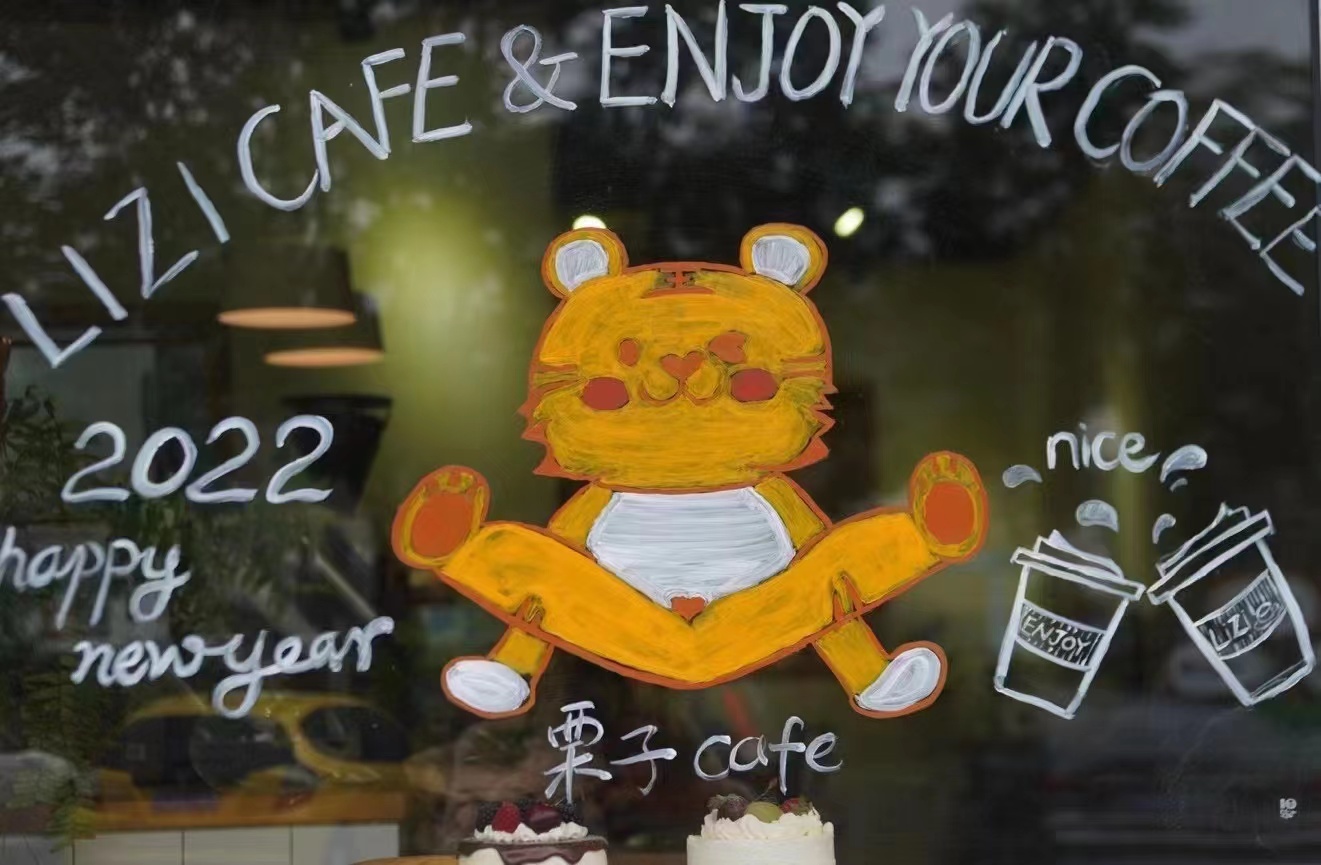 LIZI CAFE & ENJOY YOUR COFFEE
2022
happy
new year
nice
ENJOY
LIZC
栗子 cafe